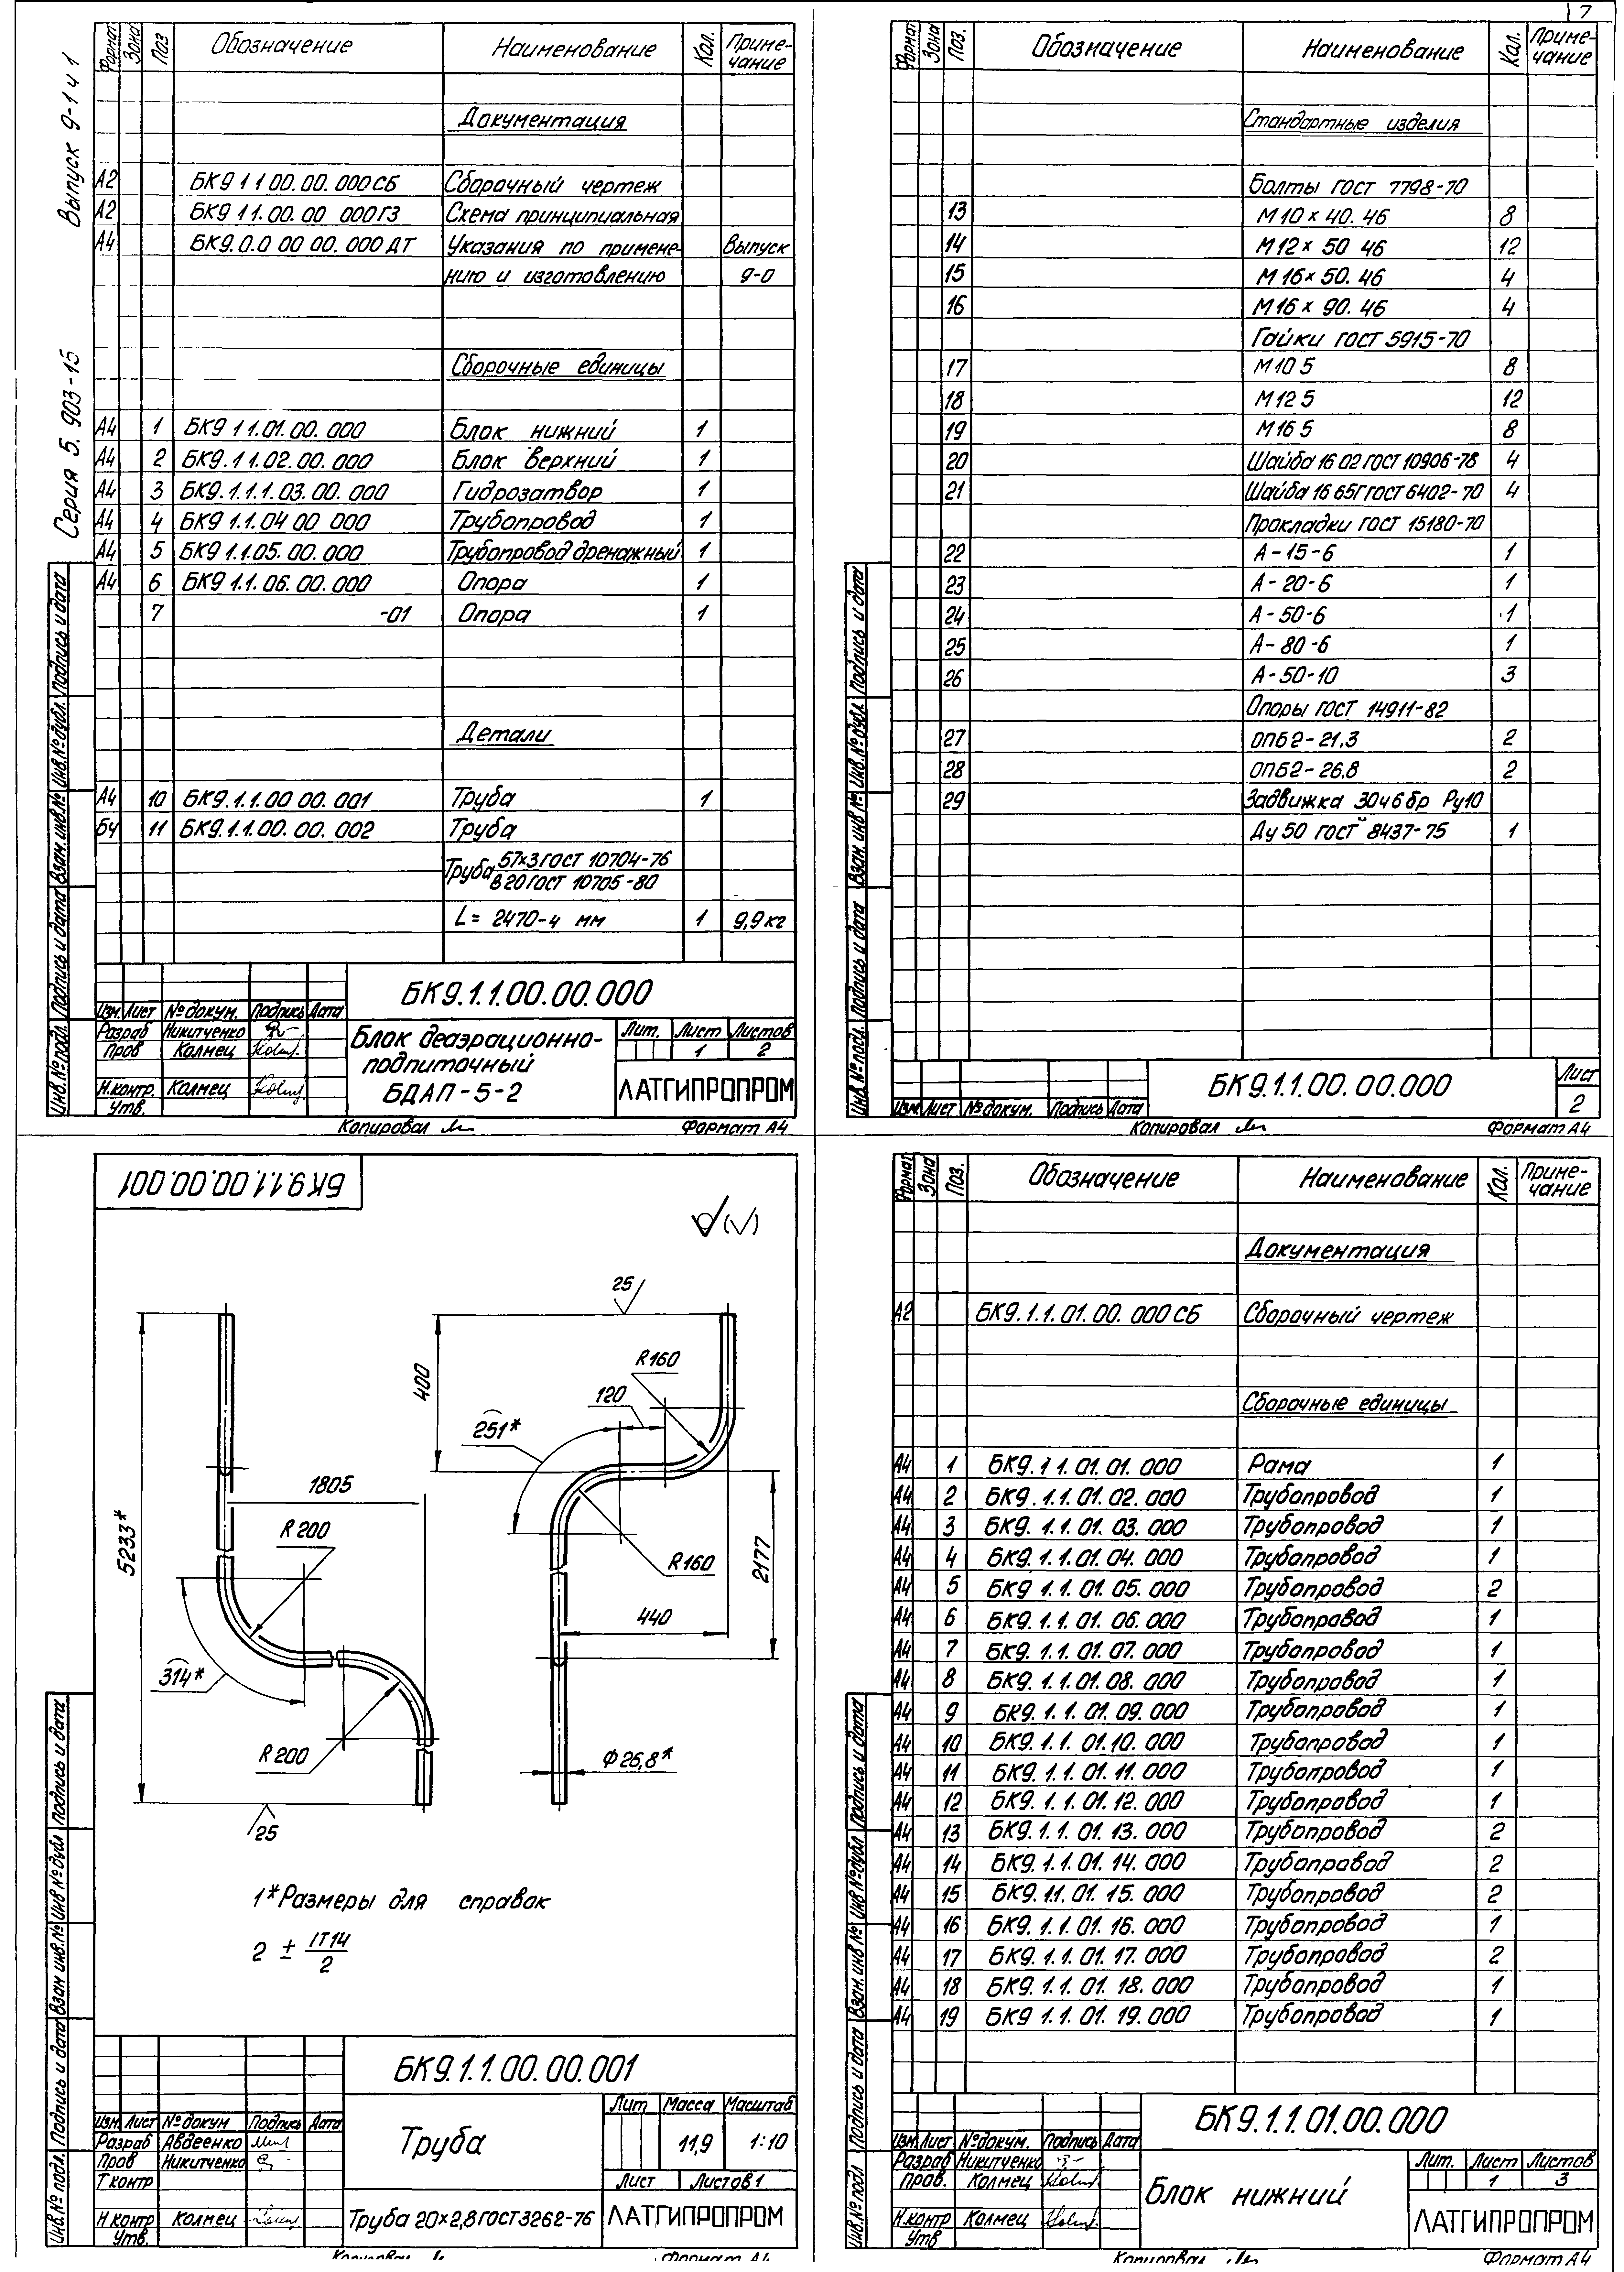 7
Выпуск 9-1 ч 1
Серия 5.903-15
Формат Зона Поз Обозначение Наименование Кол. Приме-
чание
Документация
А2 БК9 1 1 00.00.000СБ Сборочный чертеж
А2 БК9 11.00.00 000ГЗ Схема принципиальная
А4 БК9.0.0 00 00.000ДТ Указания по примене- Выпуск
нию и изготовлению 9-0
Сборочные единицы
А4 1 БК9 1 1.01.00.000 Блок нижний 1
А4 2 БК9.1 1.02.00.000 Блок верхний 1
А4 3 БК9.1.1.1.03.00.000 Гидрозатвор 1
А4 4 БК9 1.1.04 00 000 Трубопровод 1
А4 5 БК9 1.1.05.00.000 Трубопровод дренажный 1
А4 6 БК9 1.1.06.00.000 Опора 1
7 -01 Опора 1
Детали
А4 10 БК9.1.1.00 00.001 Труба 1
БЧ 11 БК9.1.1.00.00.002 Труба
Труба 57×3 ГОСТ 10704-76
В 20 ГОСТ 10705-80
L= 2470-4 мм 1 9,9кг
БК9.1.1.00.00.000
Изм. Лист № докум. Подпись Дата
Разраб Никитченко
Пров Колмец
Н.контр. Колмец
Утв.
Блок деаэрационно-
подпиточный
БДАП-5-2
Лит. Лист Листов
1 2
ЛАТГИПРОПРОМ
Копировал Формат А4
Инв.№ подл. Подпись и дата Взам.инв.№ Инв.№ дубл. Подпись и дата
Формат Зона Поз. Обозначение Наименование Кол. Приме-
чание
Стандартные изделия
Болты ГОСТ 7798-70
13 М10×40.46 8
14 М12×50 46 12
15 М16×50.46 4
16 М16×90.46 4
Гайки ГОСТ 5915-70
17 М10 5 8
18 М12 5 12
19 М16 5 8
20 Шайба 16 02 ГОСТ 10906-78 4
21 Шайба 16 65Г ГОСТ 6402-70 4
Прокладки ГОСТ 15180-70
22 А-15-6 1
23 А-20-6 1
24 А-50-6 1
25 А-80-6 1
26 А-50-10 3
Опоры ГОСТ 14911-82
27 ОПБ2-21,3 2
28 ОПБ2-26,8 2
29 Задвижка 30ч6бр Ру10
Ду 50 ГОСТ 8437-75 1
БК9.1.1.00.00.000
Изм Лист № докум. Подпись Дата
Лист
2
Копировал Формат А4
Инв.№ подл. Подпись и дата Взам.инв № Инв.№ дубл. Подпись и дата
БК9 1 1 00 00.00.001
25
400
R160
120
251*
5233*
1805
R200
R160
2177
440
314*
R200
Ф26,8*
25
1*Размеры для справок
2 ± IT14
2
БК9.1.1.00.00.001
Изм Лист № докум Подпись Дата
Разраб Авдеенко
Пров Никитченко
Т контр
Н контр Колмец
Утв.
Труба
Лит Масса Масштаб
11,9 1:10
Лист Листов 1
Труба 20×2,8 ГОСТ 3262-76
ЛАТГИПРОПРОМ
Копировал Формат А4
Инв.№ подл. Подпись и дата Взам инв.№ Инв № дубл Подпись и дата
Формат Зона Поз. Обозначение Наименование Кол. Приме-
чание
Документация
А2 БК9.1.1.01.00.000СБ Сборочный чертеж
Сборочные единицы
А4 1 БК9.1 1.01.01.000 Рама 1
А4 2 БК9.1.1.01.02.000 Трубопровод 1
А4 3 БК9.1.1.01.03.000 Трубопровод 1
А4 4 БК9.1.1.01.04.000 Трубопровод 1
А4 5 БК9 1.1.01.05.000 Трубопровод 2
А4 6 БК9.1.1.01.06.000 Трубопровод 1
А4 7 БК9.1.1.01.07.000 Трубопровод 1
А4 8 БК9.1.1.01.08.000 Трубопровод 1
А4 9 БК9.1.1.01.09.000 Трубопровод 1
А4 10 БК9.1.1.01.10.000 Трубопровод 1
А4 11 БК9.1.1.01.11.000 Трубопровод 1
А4 12 БК9.1.1.01.12.000 Трубопровод 1
А4 13 БК9.1.1.01.13.000 Трубопровод 2
А4 14 БК9.1.1.01.14.000 Трубопровод 2
А4 15 БК9 1.1.01.15.000 Трубопровод 2
А4 16 БК9.1.1.01.16.000 Трубопровод 1
А4 17 БК9.1.1.01.17.000 Трубопровод 2
А4 18 БК9.1.1.01.18.000 Трубопровод 1
А4 19 БК9 1.1.01.19.000 Трубопровод 1
БК9.1.1.01.00.000
Изм. Лист № докум. Подпись Дата
Разраб Никитченко
Пров. Колмец
Н.контр Колмец
Утв
Блок нижний
Лит. Лист Листов
1 3
ЛАТГИПРОПРОМ
Копировал Формат А4
Инв.№ подл Подпись и дата Взам.инв № Инв № дубл Подпись и дата